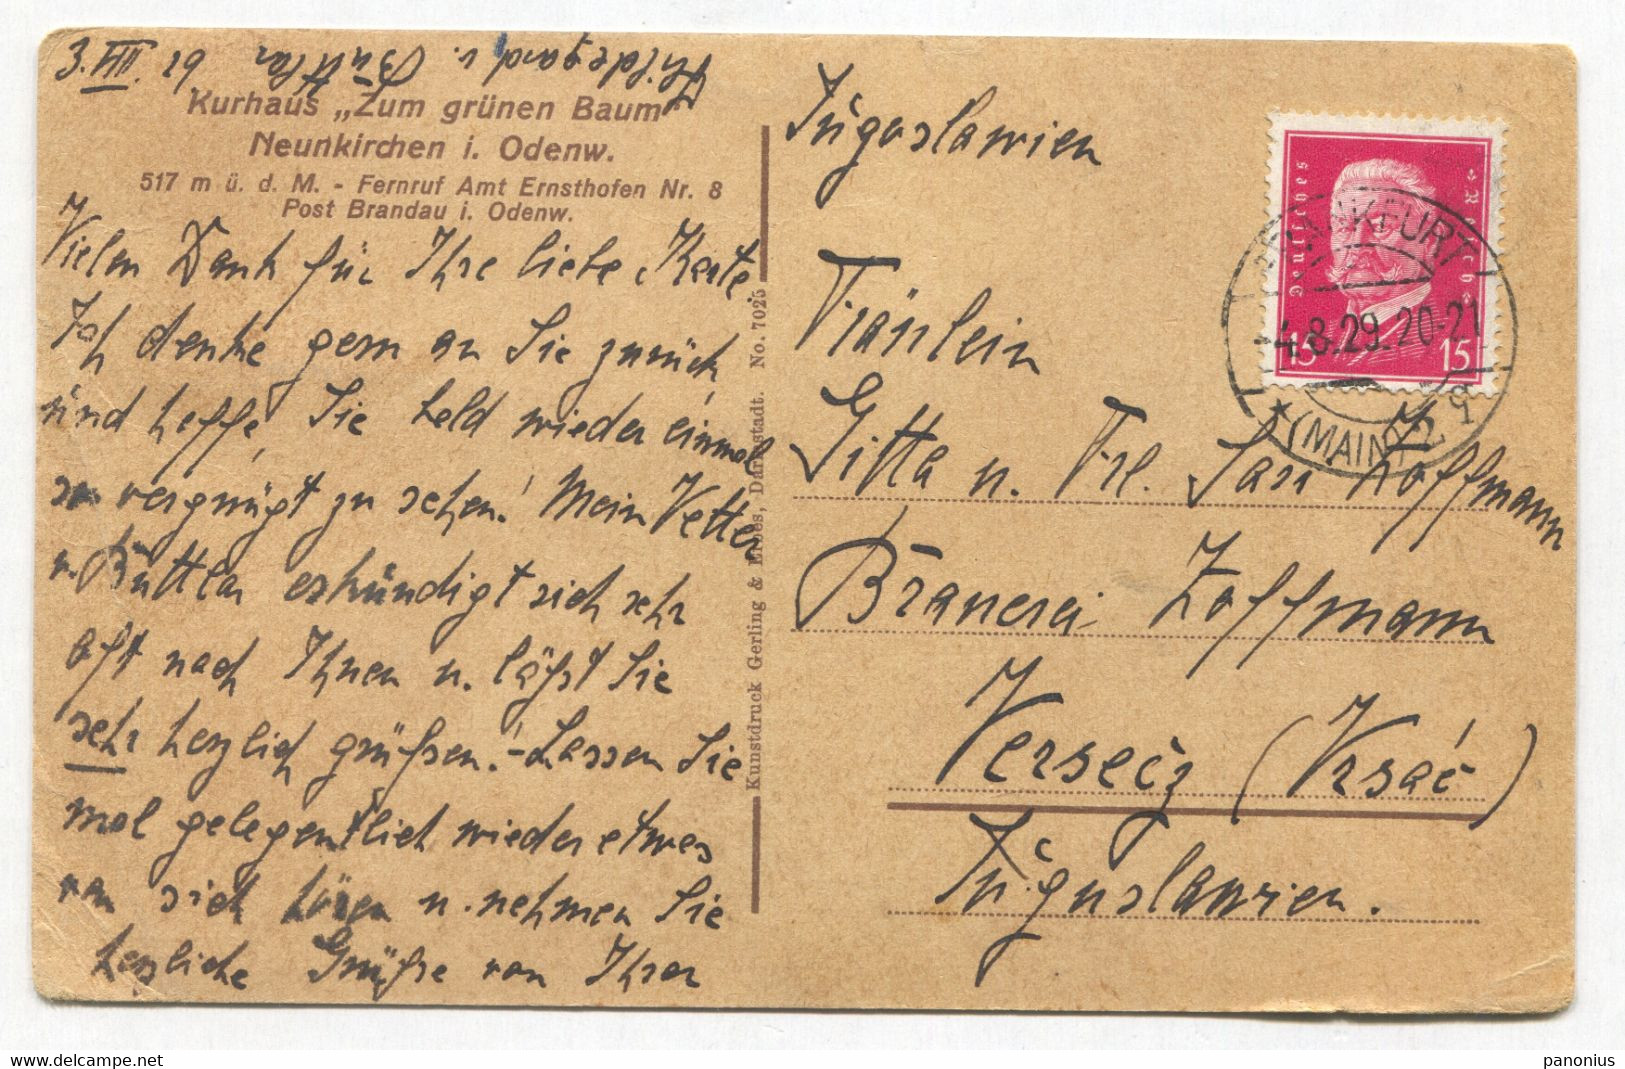 3. VIII. 29
Hildegard v. Buttlar
Kurhaus „Zum grünen Baum"
Neunkirchen i. Odenw.
517 m ü. d. M. - Fernruf Amt Ernsthofen Nr. 8
Post Brandau i. Odenw.
Vielen Dank für Ihre liebe Karte.
Ich denke gern an Sie zurück
und hoffe, Sie bald wieder einmal
so vergnügt zu sehen! Mein Vetter
v. Buttlar erkundigt sich sehr
oft nach Ihnen u. läßt Sie
sehr herzlich grüßen! - Lassen Sie
mal gelegentlich wieder etwas
von sich hören u. nehmen Sie
herzliche Grüße von Ihrer
Kunstdruck Gerling & Erbes, Darmstadt. No. 7025
Jugoslawien
Fräulein
Gitta u. Frl. Sari Hoffmann
Brauerei Hoffmann
Versecz (Vrsac)
Jugoslawien.
Deutsches Reich
15 15
FRANKFURT
-4.8.29.20-21
* (MAIN) 2 q
panonius